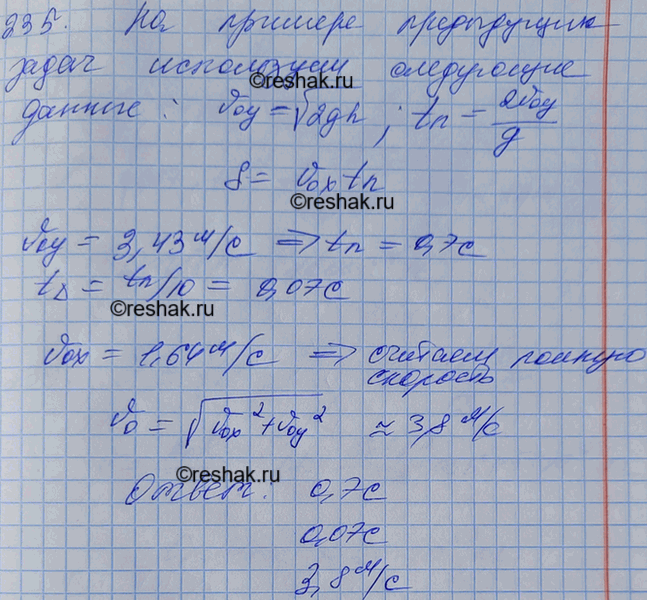 235. На примере предыдущих
задач используем следующие
©reshak.ru
данные: v₀y = √2gh ; tп = 2v₀y/g
S = v₀x tп
©reshak.ru
v₀y = 3,43 м/с ⇒ tп = 0,7 с
tΔ = tп/10 = 0,07 с
©reshak.ru
v₀x = 1,64 м/с ⇒ считаем полную
скорость
v₀ = √v₀x² + v₀y² ≈ 3,8 м/с
©reshak.ru
Ответ: 0,7 с
0,07 с
3,8 м/с